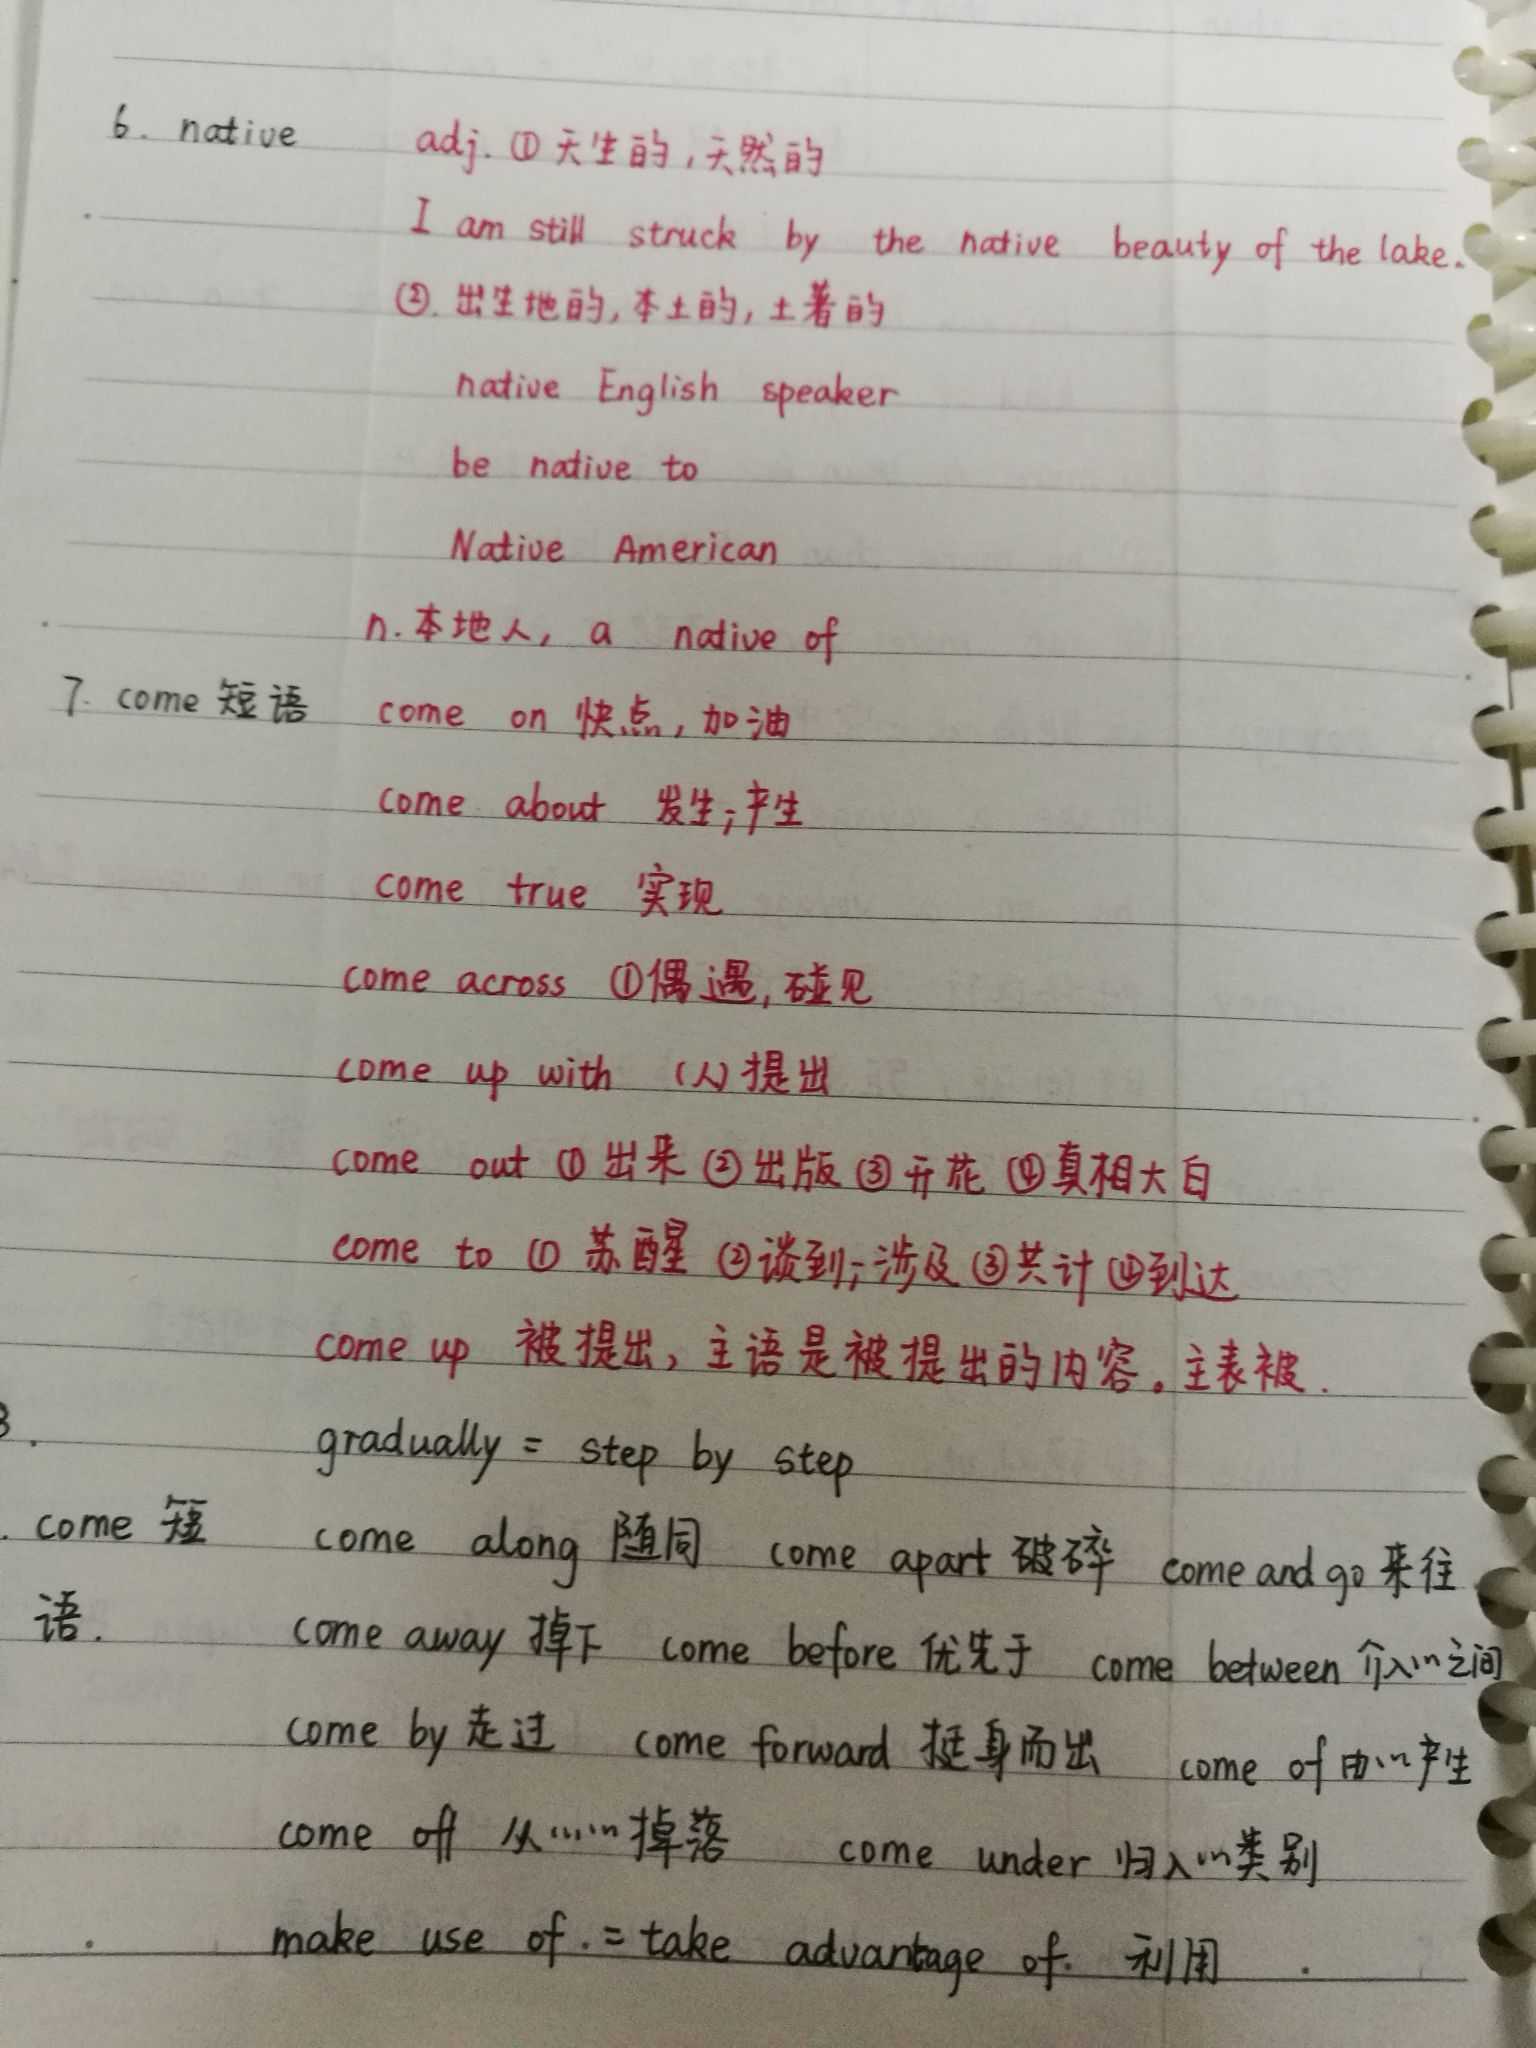 6. native adj. ①天生的,天然的
I am still struck by the native beauty of the lake.
②. 出生地的,本土的,土著的
native English speaker
be native to
Native American
n. 本地人, a native of
7. come 短语 come on 快点,加油
come about 发生;产生
come true 实现
come across ①偶遇,碰见
come up with (人)提出
come out ①出来②出版③开花④真相大白
come to ①苏醒②谈到;涉及③共计④到达
come up 被提出,主语是被提出的内容。主表被.
gradually = step by step
. come 短 come along 随同 come apart 破碎 come and go 来往
语. come away 掉下 come before 优先于 come between 介入…之间
come by 走过 come forward 挺身而出 come of 由…产生
come off 从……掉落 come under 归入…类别
make use of. = take advantage of. 利用